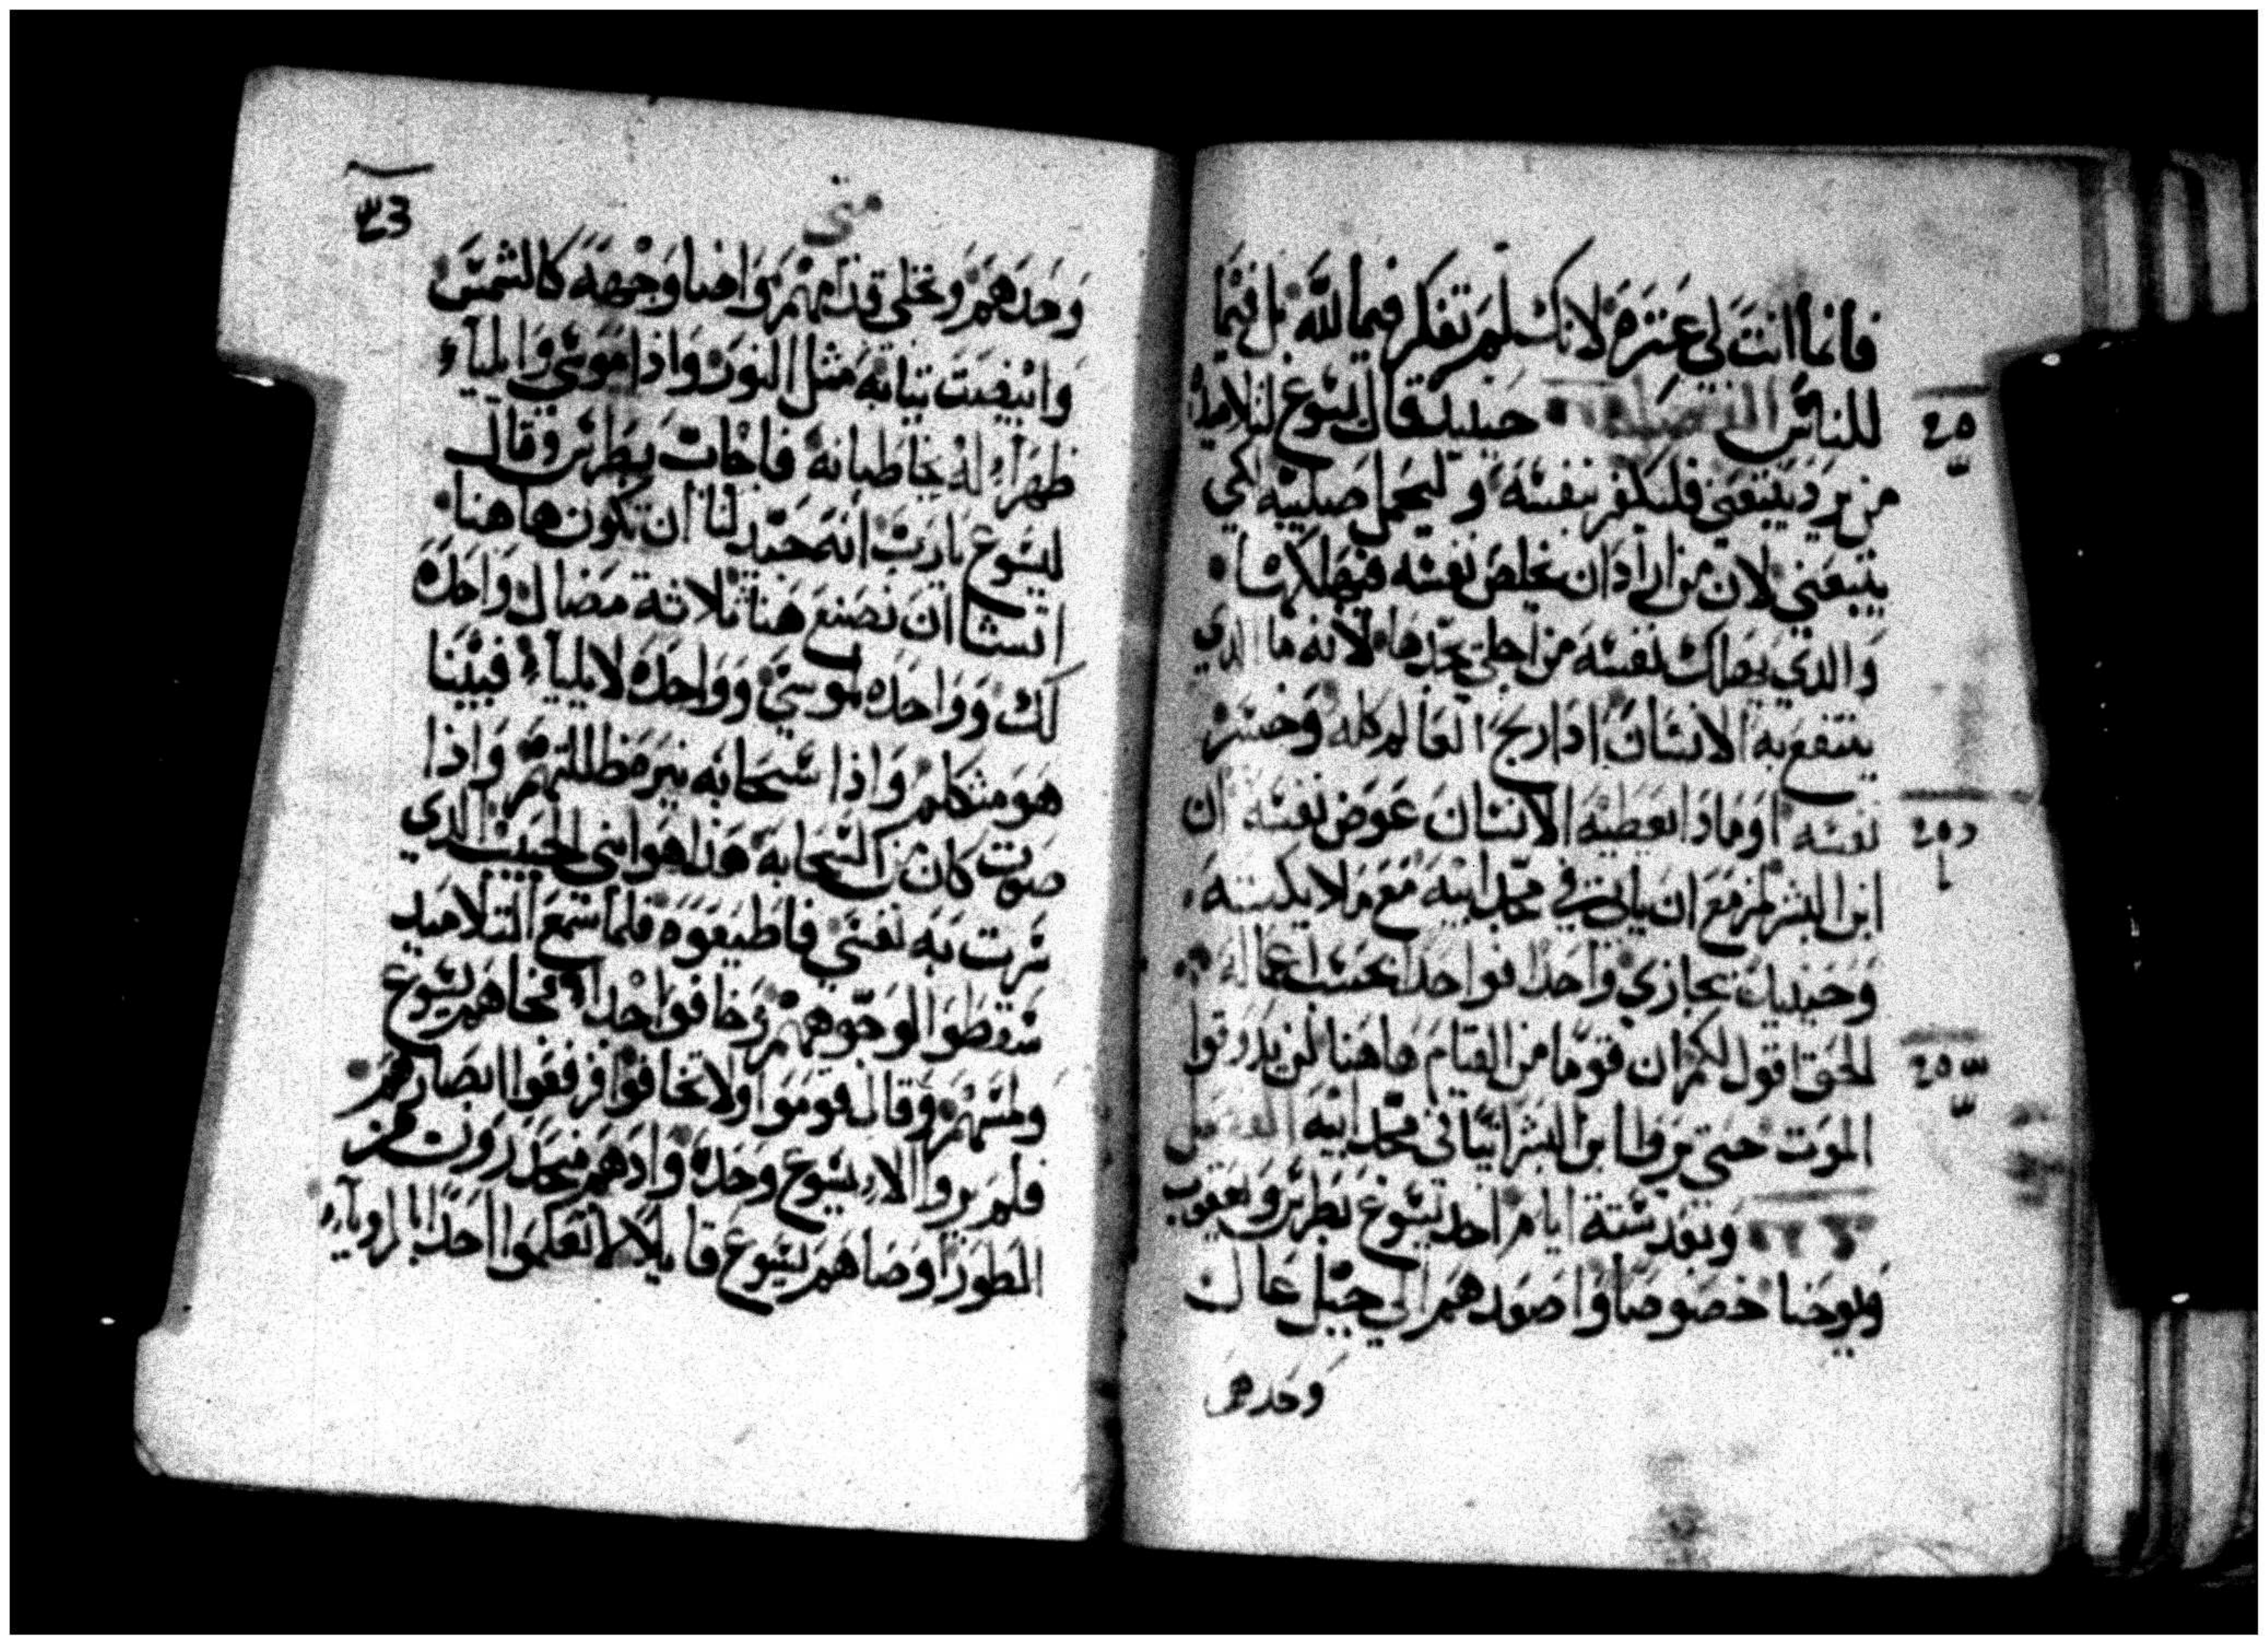 فانما انت لي عترة لانك لم تفكر فيما لله بل فيما
للناس حينيد قال يسوع لتلاميذه
من يريد يتبعني فليكفر بنفسه وليحمل صليبه لكي
يتبعني لان من اراد ان يخلص نفسه فيهلكها
والدي يهلك نفسه من اجلي يجدها لانه ما الدي
ينتفع به الانسان ادا ربح العالم كله وخسر
نفسه او مادا يعطيه الانسان عوض نفسه ان
ابن البشر مزمع ان ياتي في مجد ابيه مع ملايكته
وحينيد يجازي واحدا فواحدا بحسب اعماله
الحق اقول لكم ان قوما من القيام هاهنا لن يدوقوا
الموت حتى يروا ابن البشر اتيا في مجد ابيه الفصل
وبعد ستة ايام اخد يسوع بطرس ويعقوب
ويوحنا خصوصا واصعدهم الي جبل عال
وحدهم
متى
وحدهم وتجلي قدامهم واضا وجهه كالشمس
وابيضت تيابه مثل النور واذا موسي وايلياء
ظهرا له يخاطبانه فاجاب بطرس وقال
ليسوع يا رب انه جيد لنا ان نكون هاهنا
اتشا ان نصنع هنا ثلاثة مضال واحده
لك وواحده لموسي وواحده لايلياء فبينا
هو متكلم واذا سحابه نيره ظللتهم واذا
صوت كان من السحابه هذا هو ابني الحبيب الدي
سرت به نفسي فاطيعوه فلما سمع التلاميد
سقطوا لوجوههم وخافوا جدا فجاهم يسوع
ولمسهم وقال قوموا ولا تخافوا فرفعوا ابصارهم
فلم يروا الا يسوع وحده واد هم منحدرون من
الطور اوصاهم يسوع قايلا لا تعلموا احدا بالروياء